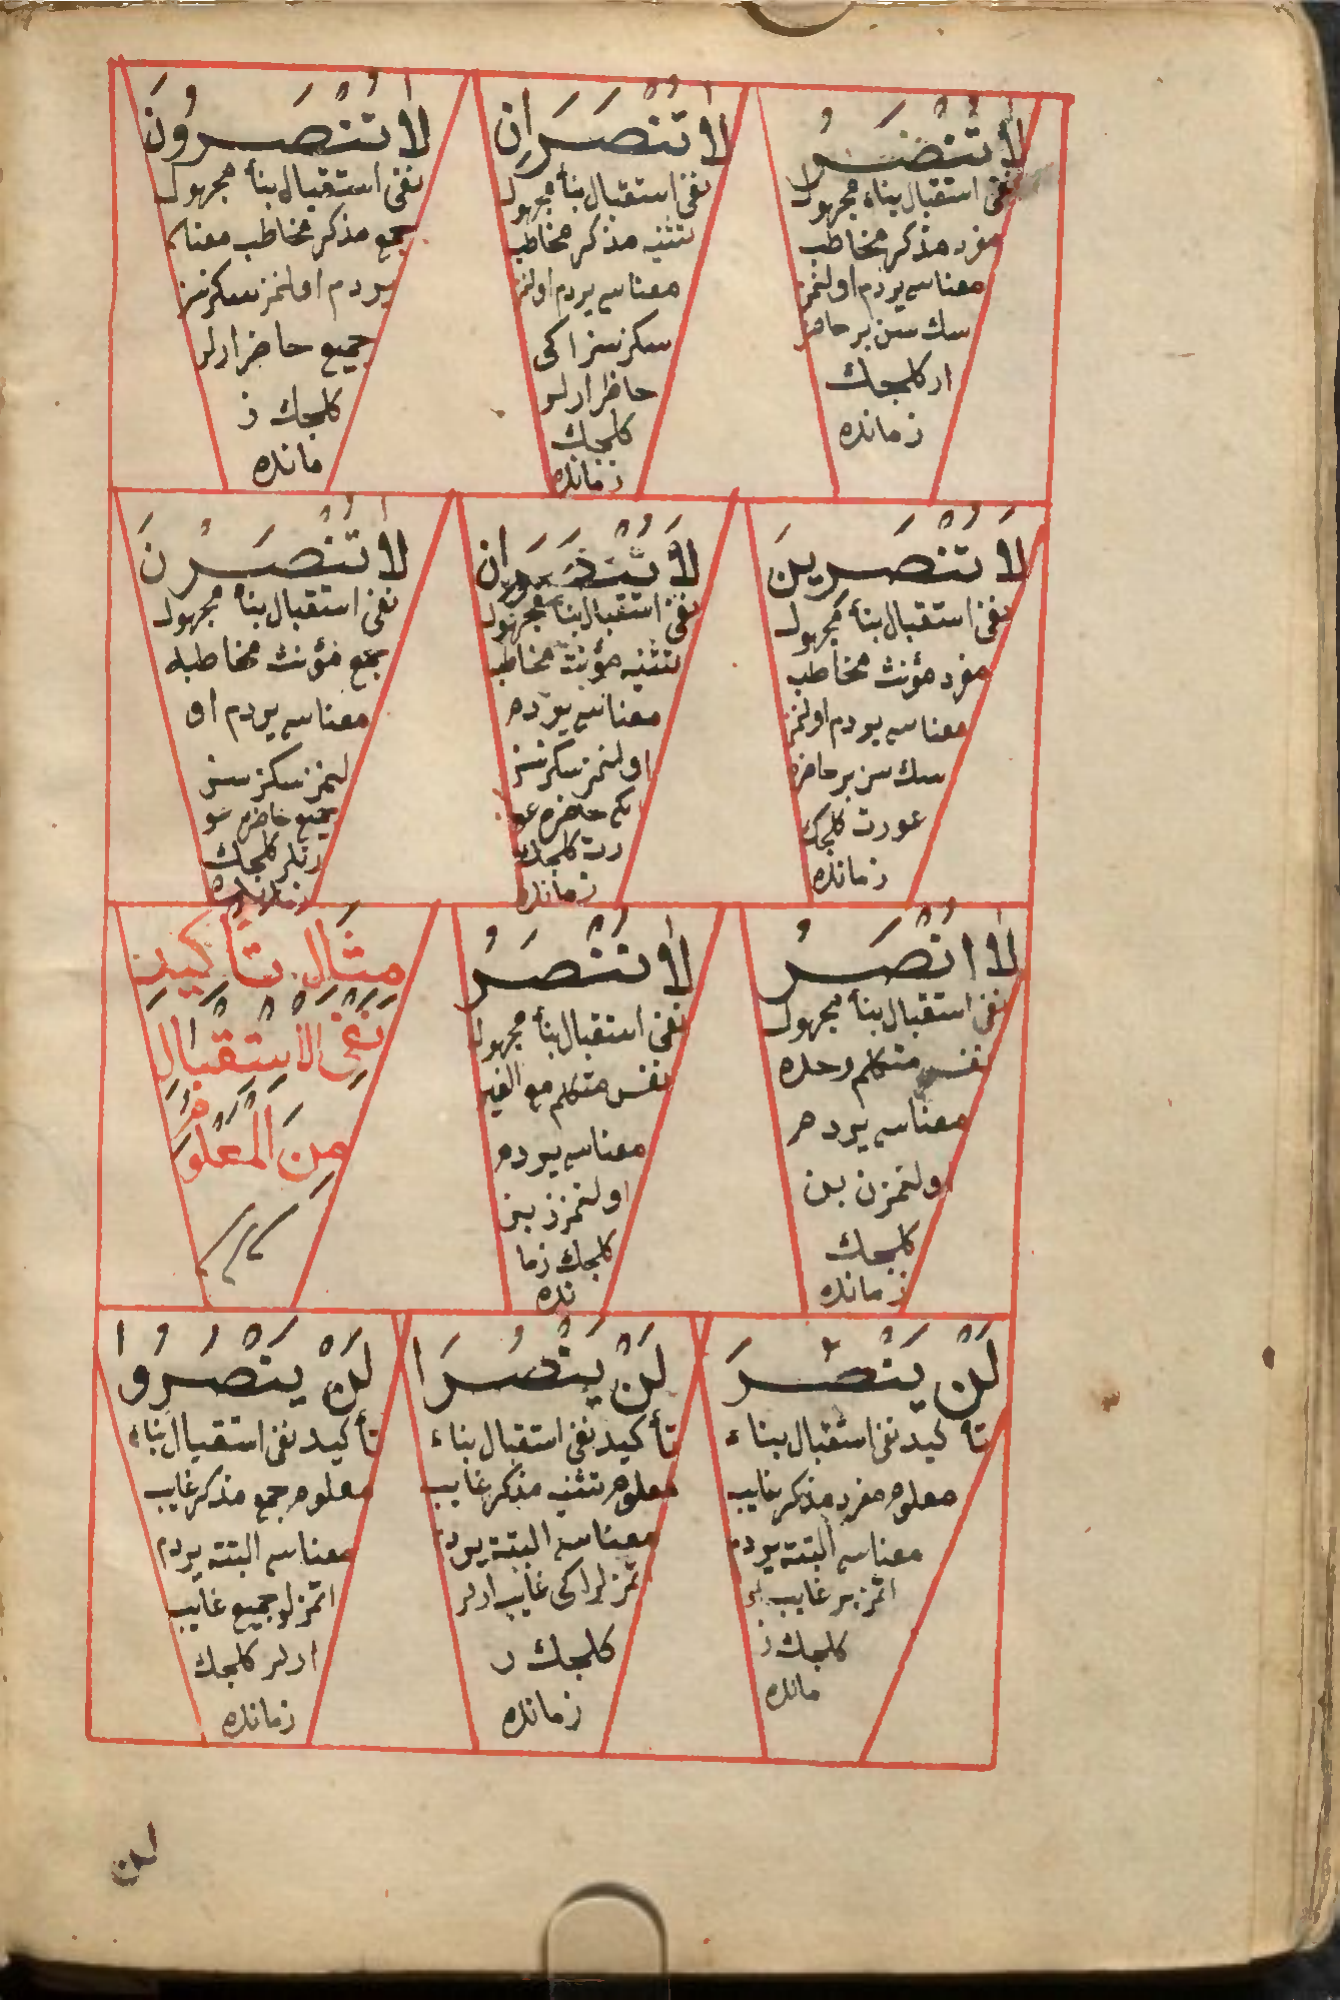 لَا تُنْصَرُ
نفی استقبال بناء مجهول
مفرد مذكر مخاطب
معناسی یردم اولنمز
سك سن بر حاضر
ار كلجك
زمانده
لَا تُنْصَرَانِ
نفی استقبال بنأ مجهول
تثنیه مذكر مخاطب
معناسی یردم اولنمز
سكزسز اكی
حاظر ارلر
كلجك
زمانده
لَا تُنْصَرُونَ
نفی استقبال بنأ مجهول
جمع مذكر مخاطب معناسی
یردم اولنمز سكزسز
جمیع حاضر ارلر
كلجك ز
مانده
لَا تُنْصَرِينَ
نفی استقبال بنأ مجهول
مفرد مؤنث مخاطب
معناسی یردم اولنمز
سك سن بر حاضره
عورت كلجك
زمانده
لَا تُنْصَرَانِ
نفی استقبال بنأ مجهول
تثنیه مؤنث مخاطب
معناسی یردم
اولنمز سكزسز
اكی حاضره عو
رت كلجك
زمانده
لَا تُنْصَرْنَ
نفی استقبال بنأ مجهول
جمع مؤنث مخاطبه
معناسی یردم او
لنمز سكز سز
جمیع حاضره عو
رتلر كلجك
زمانده
لَا اُنْصَرُ
نفی استقبال بنأ مجهول
نفس متكلم وحده
معناسی یردم
اولنمزن بن
كلجك
زمانده
لَا نُنْصَرُ
نفی استقبال بنأ مجهول
نفس متكلم مع الغیر
معناسی یردم
اولنمزز بز
كلجك زما
نده
مِثَال تَأكِيدِ
نَفْىِ الْاِسْتِقْبَالِ
مِنَ الْمَعْلُومِ
لَنْ يَنْصُرَ
تأكید نفی استقبال بناء
معلوم مفرد مذكر غایب
معناسی البتة یردم
اتمز بر غایب ار
كلجك ز
مانده
لَنْ يَنْصُرَا
تأكید نفی استقبال بناء
معلوم تثنیه مذكر غایب
معناسی البتة یردم
اتمزلر اكی غایب ارلر
كلجك ر
زمانده
لَنْ يَنْصُرُوا
تأكید نفی استقبال بناء
معلوم جمع مذكر غایب
معناسی البتة یردم
اتمزلر جمیع غایب
ارلر كلجك
زمانده
لن